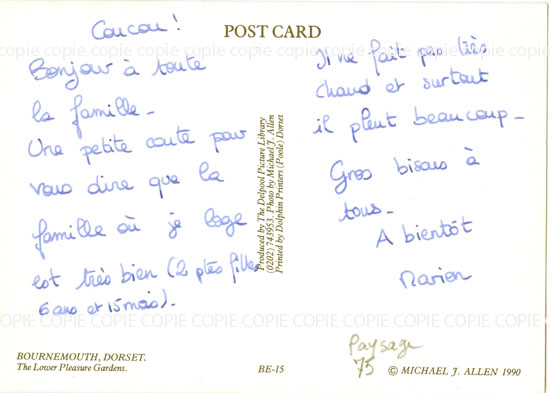 Coucou !
POST CARD
COPIE COPIE COPIE COPIE COPIE COPIE COPIE COPIE COPIE COPIE COPIE COPIE
Bonjour à toute
la famille -
Une petite carte pour
vous dire que la
famille où je loge
est très bien (2 ptes filles
6 ans et 15 mois).
Produced by The Delpool Picture Library
(0202) 743953. Photo by Michael J. Allen
Printed by Dolphin Printers (Poole) Dorset
Il ne fait pas très
chaud et surtout
il pleut beaucoup -
Gros bisous à
tous -
A bientôt
Marion
COPIE COPIE COPIE COPIE COPIE COPIE COPIE COPIE COPIE COPIE COPIE COPIE
Paysage
75
BOURNEMOUTH, DORSET.
The Lower Pleasure Gardens.
BE-15
© MICHAEL J. ALLEN 1990